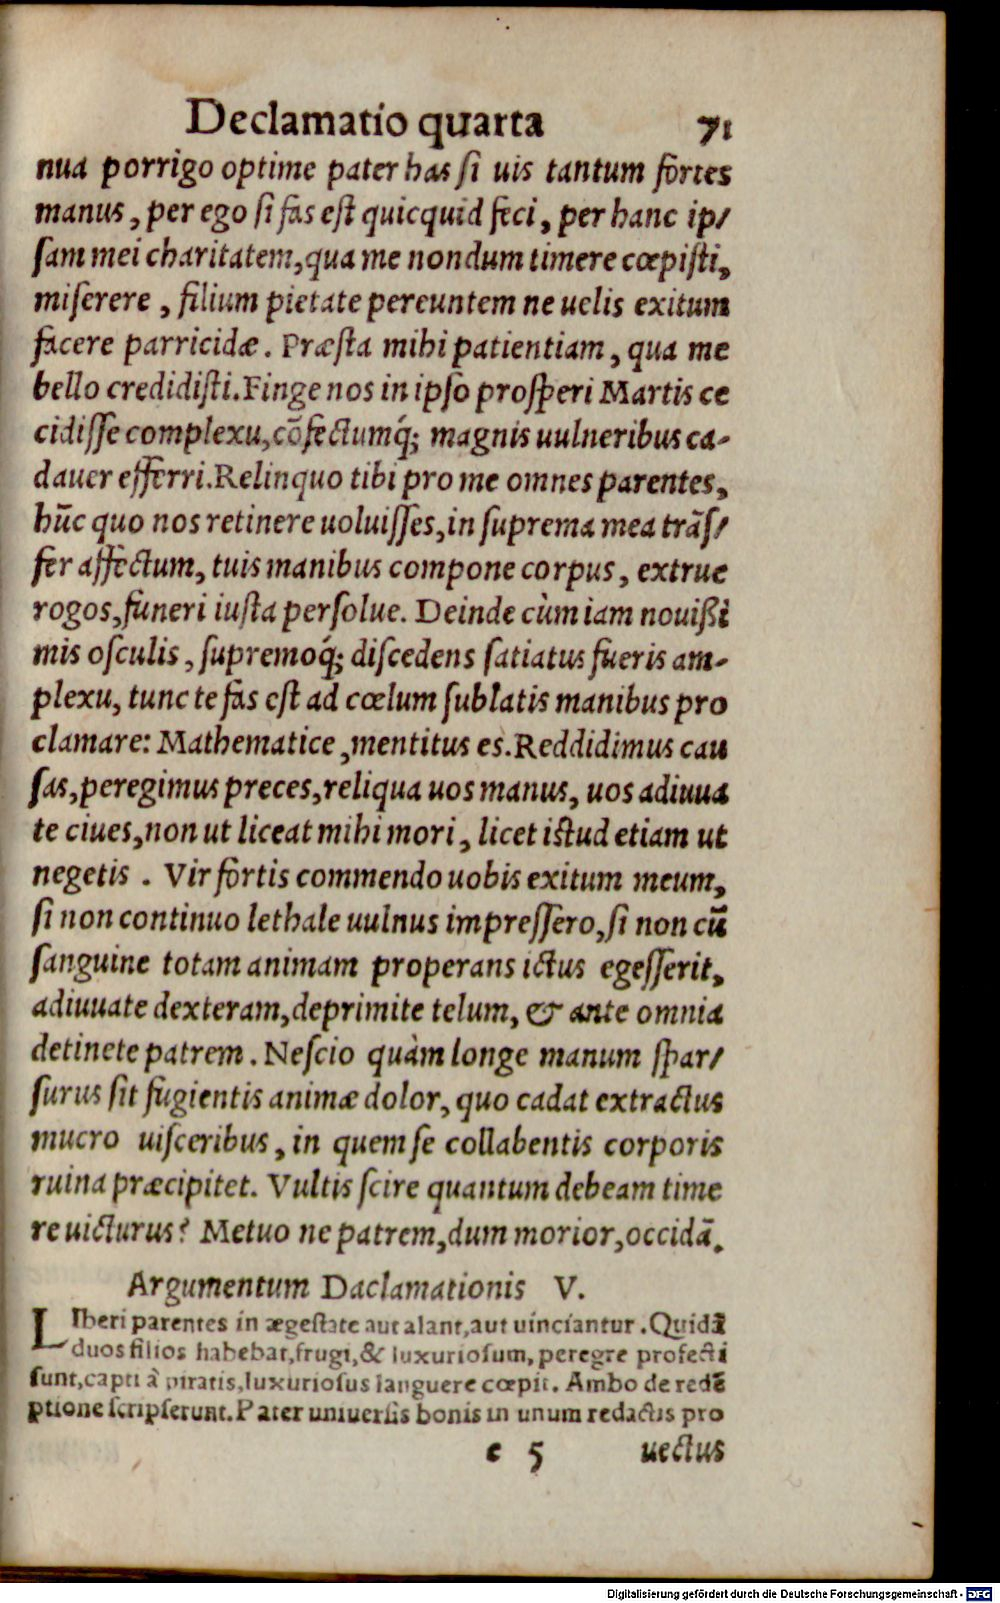 Declamatio quarta 71
nua porrigo optime pater has si uis tantum fortes
manus, per ego si fas est quicquid feci, per hanc ip/
sam mei charitatem, qua me nondum timere cœpisti,
miserere, filium pietate pereuntem ne uelis exitum
facere parricidæ. Præsta mihi patientiam, qua me
bello credidisti. Finge nos in ipso prosperi Martis ce
cidisse complexu, cõfectumq́; magnis uulneribus ca-
dauer efferri. Relinquo tibi pro me omnes parentes,
hũc quo nos retinere uoluisses, in suprema mea trãs/
fer affectum, tuis manibus compone corpus, extrue
rogos, funeri iusta persolue. Deinde cùm iam nouißi
mis osculis, supremoq́; discedens satiatus fueris am-
plexu, tunc te fas est ad cœlum sublatis manibus pro
clamare: Mathematice, mentitus es. Reddidimus cau
sas, peregimus preces, reliqua uos manus, uos adiuua
te ciues, non ut liceat mihi mori, licet istud etiam ut
negetis. Vir fortis commendo uobis exitum meum,
si non continuo lethale uulnus impressero, si non cũ
sanguine totam animam properans ictus egesserit,
adiuuate dexteram, deprimite telum, & ante omnia
detinete patrem. Nescio quàm longe manum spar/
surus sit fugientis animæ dolor, quo cadat extractus
mucro uisceribus, in quem se collabentis corporis
ruina præcipitet. Vultis scire quantum debeam time
re uicturus? Metuo ne patrem, dum morior, occidã.
Argumentum Daclamationis V.
LIberi parentes in ægestate aut alant, aut uinciantur. Quidã
duos filios habebat, frugi, & luxuriosum, peregre profecti
sunt, capti à piratis, luxuriosus languere cœpit. Ambo de redẽ
ptione scripserunt. Pater uniuersis bonis in unum redactis pro
e 5 uectus
Digitalisierung gefördert durch die Deutsche Forschungsgemeinschaft - DFG